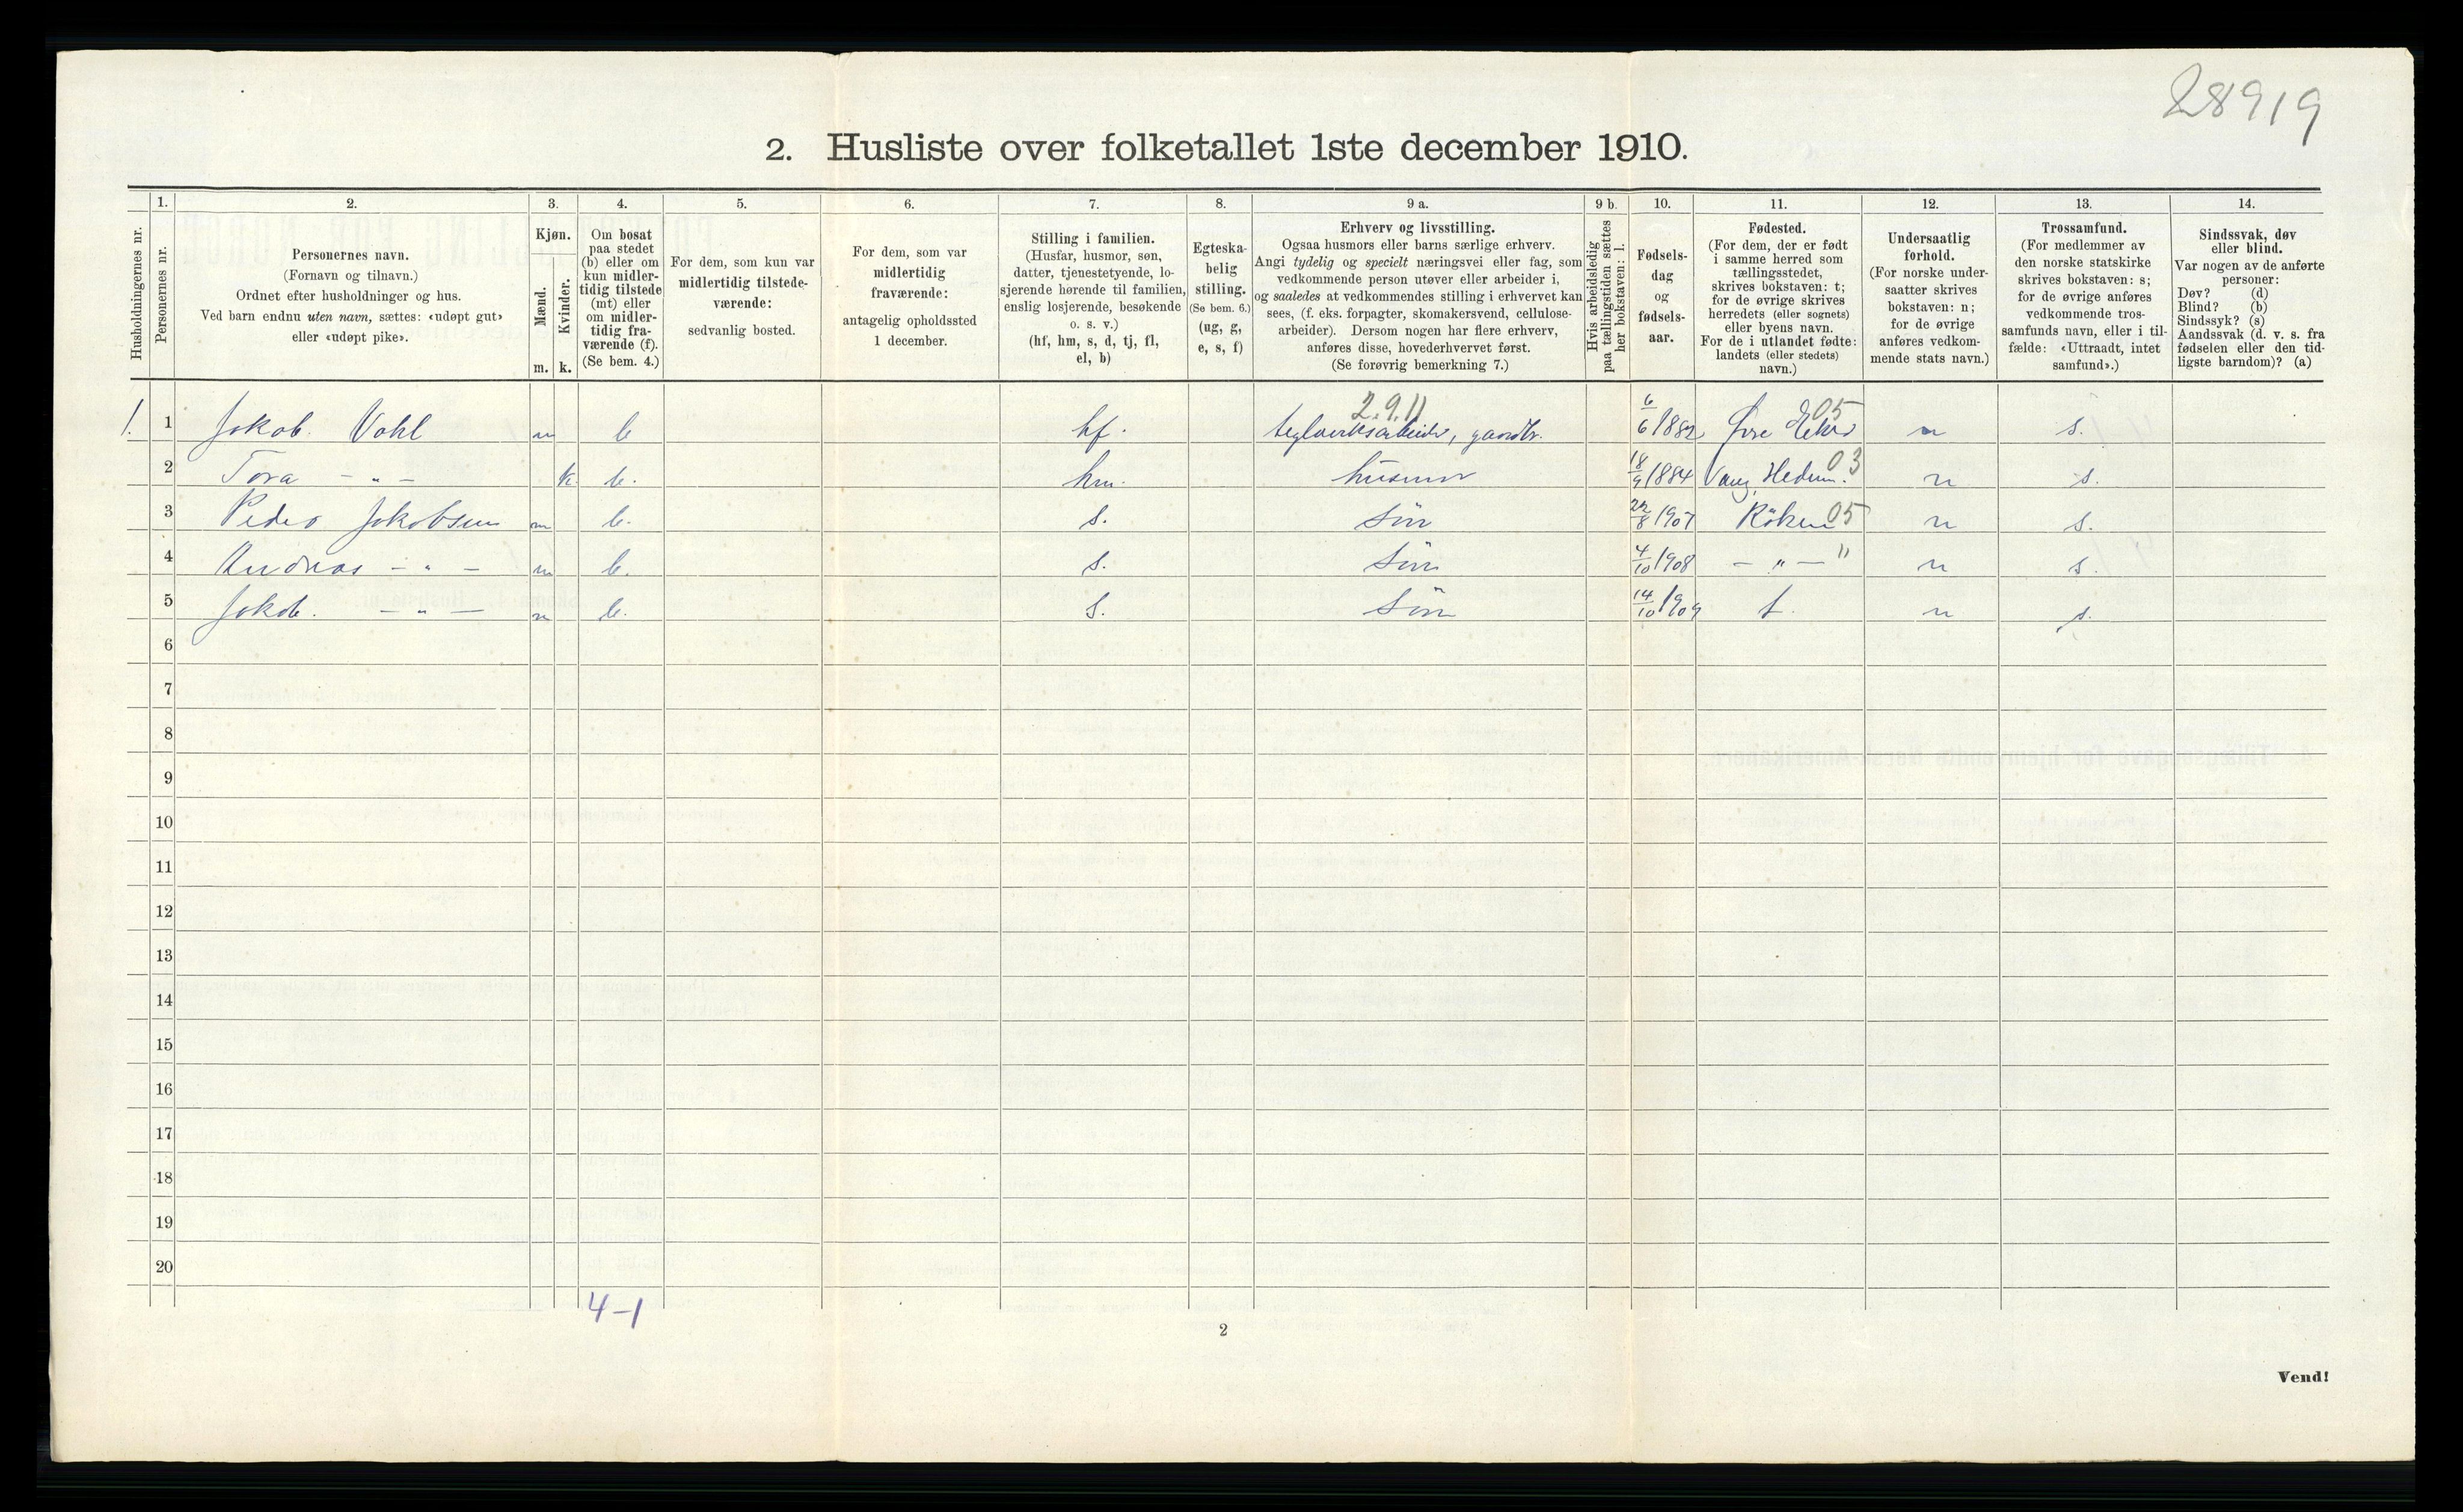 28919
2. Husliste over folketallet 1ste december 1910.
Husholdningernes nr.
1.
Personernes nr.
2.
Personernes navn.
(Fornavn og tilnavn.)
Ordnet efter husholdninger og hus.
Ved barn endnu uten navn, sættes: «udøpt gut»
eller «udøpt pike».
3.
Kjøn.
Mænd.
Kvinder.
m. k.
4.
Om bosat
paa stedet
(b) eller om
kun midler-
tidig tilstede
(mt) eller
om midler-
tidig fra-
værende (f).
(Se bem. 4.)
5.
For dem, som kun var
midlertidig tilstede-
værende:
sedvanlig bosted.
6.
For dem, som var
midlertidig
fraværende:
antagelig opholdssted
1 december.
7.
Stilling i familien.
(Husfar, husmor, søn,
datter, tjenestetyende, lo-
sjerende hørende til familien,
enslig losjerende, besøkende
o. s. v.)
(hf, hm, s, d, tj, fl,
el, b)
8.
Egteska-
belig
stilling.
(Se bem. 6.)
(ug, g,
e, s, f)
9 a.
Erhverv og livsstilling.
Ogsaa husmors eller barns særlige erhverv.
Angi tydelig og specielt næringsvei eller fag, som
vedkommende person utøver eller arbeider i,
og saaledes at vedkommendes stilling i erhvervet kan
sees, (f. eks. forpagter, skomakersvend, cellulose-
arbeider). Dersom nogen har flere erhverv,
anføres disse, hovederhvervet først.
(Se forøvrig bemerkning 7.)
9 b.
Hvis arbeidsledig
paa tællingstiden sættes
her bokstaven: l.
10.
Fødsels-
dag
og
fødsels-
aar.
11.
Fødested.
(For dem, der er født
i samme herred som
tællingsstedet,
skrives bokstaven: t;
for de øvrige skrives
herredets (eller sognets)
eller byens navn.
For de i utlandet fødte:
landets (eller stedets)
navn.)
12.
Undersaatlig
forhold.
(For norske under-
saatter skrives
bokstaven: n;
for de øvrige
anføres vedkom-
mende stats navn.)
13.
Trossamfund.
(For medlemmer av
den norske statskirke
skrives bokstaven: s;
for de øvrige anføres
vedkommende tros-
samfunds navn, eller i til-
fælde: «Uttraadt, intet
samfund».)
14.
Sindssvak, døv
eller blind.
Var nogen av de anførte
personer:
Døv? (d)
Blind? (b)
Sindssyk? (s)
Aandssvak (d. v. s. fra
fødselen eller den tid-
ligste barndom)? (a)
2.9.11
1. 1 Jakob. Vahl m b hf. teglverksarbeider, gaardbr. 6/6 1882 Øvre Eker 05 n s.
2 Tora - „ - k. b. hm. husmor 18/9 1884 Vang, Hedm. 03 n s.
3 Peder Jakobsen m b. s. sön 22/8 1907 Röken 05 n s.
4 Andreas - „ - m b. s. Sön 4/10 1908 - „ - " n s.
5 Jakob. - „ - m b. s. Sön 14/10 1909 t. n s.
6
7
8
9
10
11
12
13
14
15
16
17
18
19
20
4-1
2
Vend!